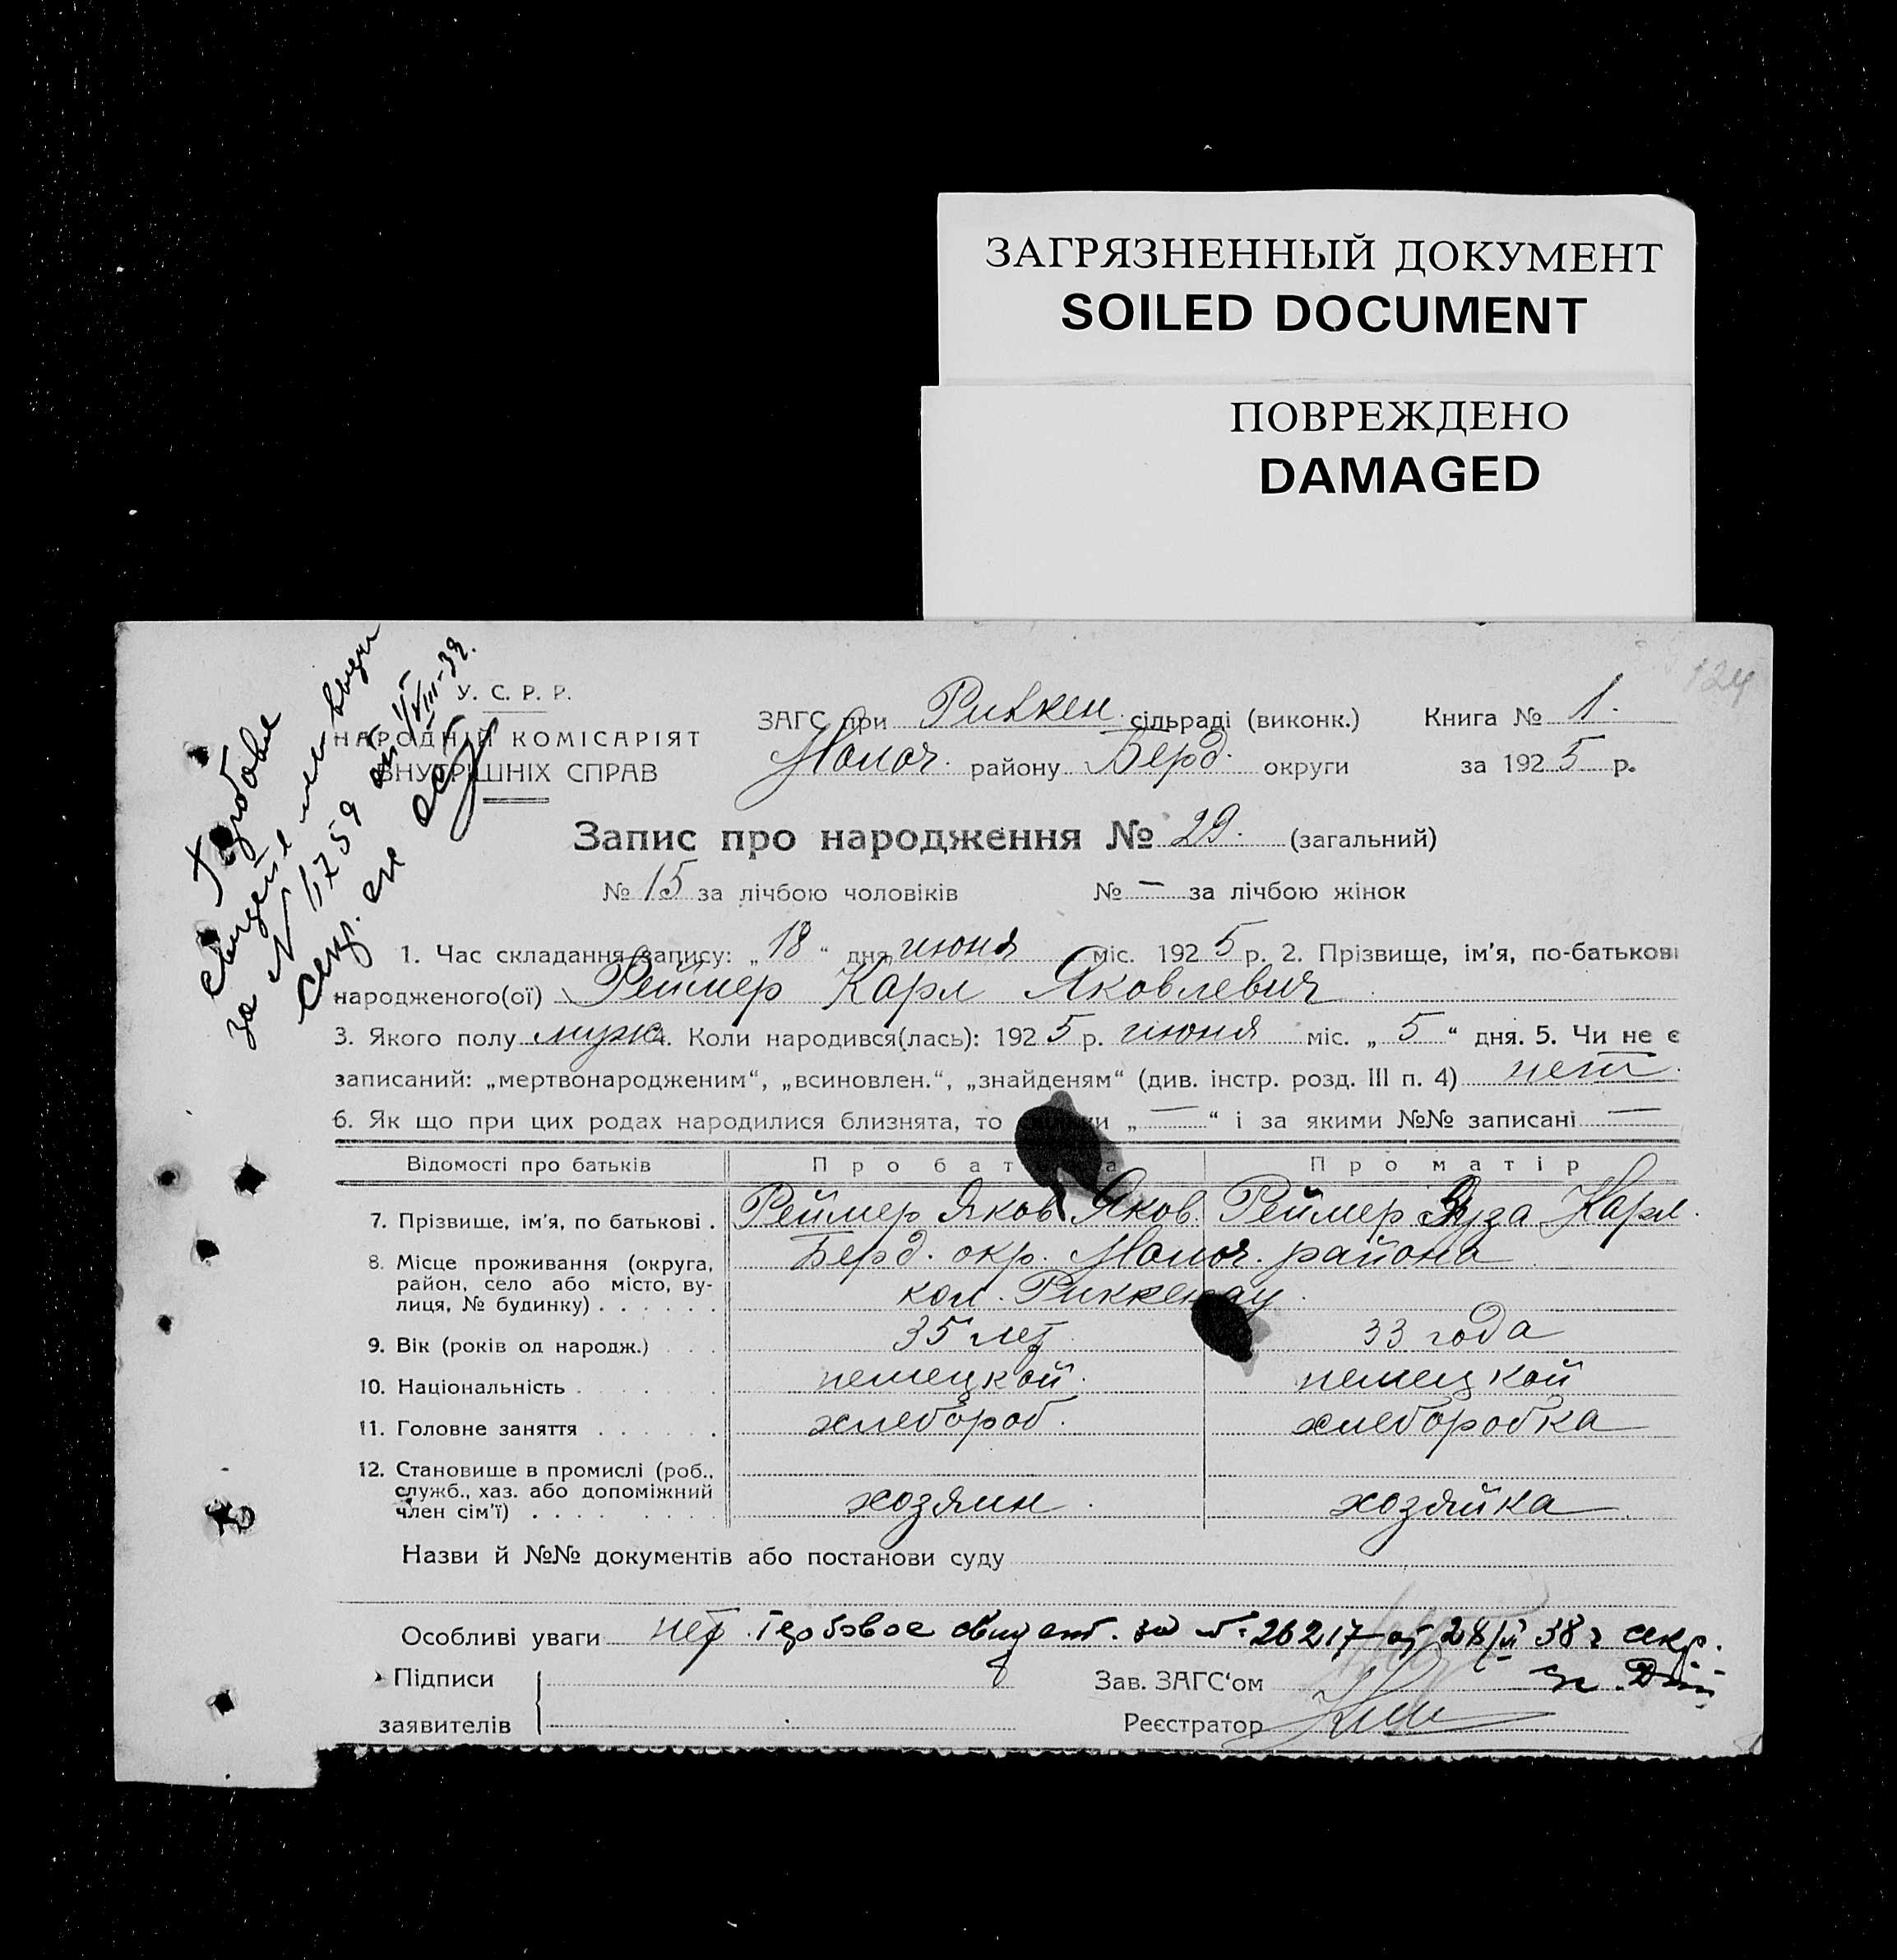 ЗАГРЯЗНЕННЫЙ ДОКУМЕНТ
SOILED DOCUMENT
ПОВРЕЖДЕНО
DAMAGED
124
Гербовое
за № 11759 от
У. С. Р. Р.
НАРОДНІЙ КОМІСАРІЯТ
ВНУТРІШНІХ СПРАВ
ЗАГС при Риккен. сільраді (виконк.) Книга № 1.
Молоч. району Берд. округи за 1925 р.
Запис про народження № 29. (загальний)
№ 15 за лічбою чоловіків № — за лічбою жінок
1. Час складання запису: „18“ дня июня міс. 1925 р. 2. Прізвище, ім'я, по-батькові
народженого(ої) Реймер Карл Яковлевич
3. Якого полу муж. 4. Коли народився(лась): 1925 р. июня міс. „5“ дня. 5. Чи не є
записаний: „мертвонародженим“, „всиновлен.“, „знайденям“ (див. інстр. розд. III п. 4) нет.
6. Як що при цих родах народилися близнята, то „—“ і за якими №№ записані —
Відомості про батьків Про батька Про матір
7. Прізвище, ім'я, по батькові . Реймер Яков Яков. Реймер Луза Карл.
8. Місце проживання (округа, Берд. окр. Молоч. района
район, село або місто, ву-
лиця, № будинку) . . . . . . кол. Риккенау.
9. Вік (років од народж.) . . . 35 лет. 33 года
10. Національність . . . . немецкой. немецкой
11. Головне заняття . . . . . . хлебороб. хлеборобка
12. Становище в промислі (роб.,
служб., хаз. або допоміжний
член сім'ї) . . . . . . . . хозяин. хозяйка.
Назви й №№ документів або постанови суду
Особливі уваги нет. Гербовое свидет. за №: 26217 от 28/VI 38 г секр.
Підписи Зав. ЗАГС'ом
заявителів Реєстратор